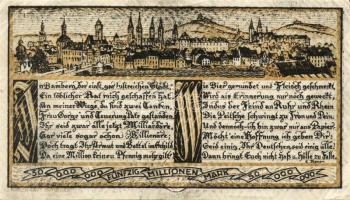 In Bamberg, der einst gar fürstreichen Stadt,
Ein löblicher Rat mich geschaffen hat.
An meiner Wiege, da stand zwei Tanten,
Frau Sorge und Teuerung sie genannten.
Ihr seid zwar alle jetzt Milliardäre,
Gar viele sogar schon Billionäre.
Doch tragt Ihr Armut und Bettel im Schild,
Da eine Million keinen Pfennig mehr gilt.
Wie Bier gemundet und Fleisch geschmeckt,
Wird als Erinnerung nur noch geweckt,
Indes der Feind an Ruhr und Rhein
Die Peitsche schwingt zu Fron und Pein.
Und dennoch, ich bin zwar nur aus Papier
Möcht eine Hoffnung ich geben Dir:
Seid einig, Ihr Deutschen, seid einig alle!
Dann bringt Euch nicht Haß u. Hölle zu Falle.
50 000 000 FÜNFZIG MILLIONEN MARK 50 000 000